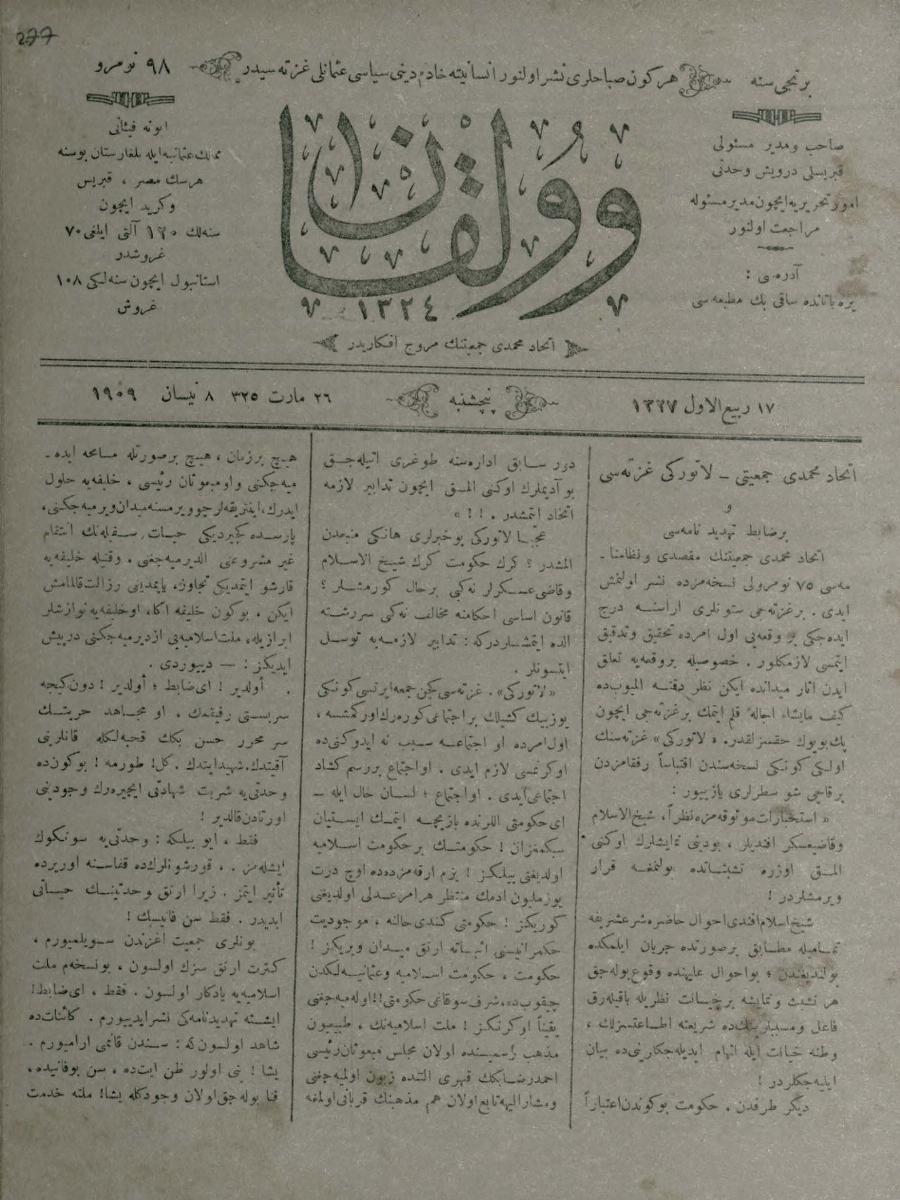 277
برنجی سنه
هركون صباحلری نشر اولنور انسانیته خادم دینی سیاسی عثمانلی غزته سیدر
٩٨ نومرو
صاحب ومدیر مسئولی
قبریسلی درویش وحدتی
امور تحریریه ایچون مدیر مسئوله
مراجعت اولنور
آدره سی :
یره باتانده ساقی بك مطبعه سی
وولقان
١٣٢٤
ابونه فیئاتی
ممالك عثمانیه ایله بلغارستان بوسنه
هرسك مصر ، قبریس
وكرید ایچون
سنه لك ١٢٠ آلتی ایلغی ٧٠
غروشدر
استانبول ایچون سنه لكی ١٠٨
غروش
اتحاد محمدی جمعیتنك مروج افكاریدر
١٧ ربیع الاول ١٣٢٧
پنجشنبه
٢٦ مارت ٣٢٥ ٨ نیسان ١٩٠٩
اتحاد محمدی جمعیتی ــ لاتوركی غزته سی
و
برضابط تهدید نامه سی
اتحاد محمدی جمعیتنك مقصدی ونظامنا ــ
مه سی ٧٥ نومرولی نسخه مزده نشر اولنمش
ایدی . برغزته جی ستونلری اراسنه درج
ایده جكی بر وقعه یی اول امرده تحقیق وتدقیق
ایتمسی لازمكلور . خصوصیله بروقعه یه تعلق
ایدن آثار میدانده ایكن نظر دقته المیوبده
كیف مایشاء اجاله قلم ایتمك برغزته جی ایچون
پك بویوك حقسزلقدر . « لاتوركی» غزته سنك
اولكی كونكی نسخه سندن اقتباساً رفقامزدن
برقاچی شو سطرلری یازیيور :
« استخبارات موثوقه مزه نظراً ، شیخ الاسلام
وقاضیعسكر افندیلر ، بودینی نمایشلرك اوكنی
المق اوزره تشبثاتده بولنمغه قرار
ویرمشلردر !
شیخ اسلام افندی احوال حاضره شرع شریفه
تمامیله مطابق برصورتده جریان ایلمكده
بولندیغندن ؛ بواحوال علیهنده وقوع بوله جق
هر تشبث ونمایشه برخیانت نظریله باقیله رق
فاعل ومسببلرینكده شریعته اطاعتسزلك ،
وطنه خیانت ایله اتهام ایدیله جكلرینی ده بیان
ایلیه جكلردر !
دیگر طرفدن . حكومت بوكوندن اعتباراً
دور سابق اداره سنه طوغری آتیله جق
بو آدیملرك اوكنی المق ایچون تدابیر لازمه
اتخاذ ایتمشدر . ! ! »
عجبا لاتوركی بوخبرلری هانكی منبعدن
المشدر ؟ كرك حكومت كرك شیخ الاسلام
وقاضی عسكرلر نه كی برحال كورمشلر ؟
قانون اساسی احكامنه مخالف نه كی سررشته
الده ایتمشلردركه : تدابیر لازمه یه توسل
ایتسونلر .
«لاتوركی» . غزته سی كچن جمعه ایرتسی كونكی
یوزبیك كشیلك براجتماعی كوره رك اوركمشسه ،
اول امرده او اجتماعه سبب نه ایدوكنی ده
اوكرنمسی لازم ایدی . او اجتماع بررسم كشاد
اجتماعی ایدی . او اجتماع ؛ لسان حال ایله ــ
ای حكومتی اللرنده بازیچه ایتمك ایستیان
سبكمغزان ! حكومتك بر حكومت اسلامیه
اولدیغنی بیلكز ! بزم ارقه مزده ده اوچ درت
یوز ملیون ادمك منتظر هر امر عدلی اولدیغنی
كوریكز ! حكومتی كندی حالنه ، موجودیت
حكمرانیسنی اثباته ارتق میدان ویریكز !
حكومت ، حكومت اسلامیه وعثمانیه لكدن
چیقوب ده ، شرف سوقاغی حكومتی !! اوله میه جغنی
یقیناً اوكرنكز ! ملت اسلامیه نك ، طبیعیون
مذهب رئیسنده اولان مجلس مبعوثان رئیسی
احمد رضا بك قهری التنده زبون اولمیه جغنی
ومشارالیهه تابع اولان هم مذهبنك قربانی اولمغه
هیچ برزمان ، هیچ برصورتله مسامحه ایده ــ
میه جكنی واو مبعوثان رئیسی ، خلیفه یه حلول
ایدرك ، اینتریقه لر چویرمسنه میدان ویرمیه جكنی ،
پارسده كچیردیكی حیات سفیله نك انتقام
غیر مشروعنی الدیرمیه جغنی . وقتیله خلیفه یه
قارشو ایتمدیكی تجاوز ، یاپمدیغی رزالت قالمامش
ایكن . بوكون خلیفه اكا ، او خلیفه یه نوازشلر
ابرازیله ، ملت اسلامیه یی ازدیرمیه جكنی درپیش
ایدیكز : — دییوردی .
. اولدیر ! ای ضابط ؛ اولدیر ! دون كیجه
سربستی رفیقمك . او مجاهد حریتك
سر محرر حسن بكك قحبه لكله قانلرینی
آقیتدك . شهید ایتدك . كل ! طورمه ! بوكون ده
وحدتی یه شربت شهادتی ایچیره رك وجودینی
اورتادن قالدیر !
فقط ، ایو بیلكه : وحدتی یه سونكوك
ایشله مز . . قورشونلرك ده قفاسنه اوریرده
تأثیر ایتمز . زیرا ارتق وحدتینك حیاتی
ابدیدر . فقط سن فانیسك !
بونلری جمعیت اغزندن سویلمیورم ،
كثرت ارتق سزك اولسون ، بونسخه م ملت
اسلامیه یه یادكار اولسون . فقط ، ای ضابط !
ایشته تهدیدنامه كی نشر ایدییورم . كائنات ده
شاهد اولسون كه : سندن قانمی ارامیورم .
یشا ! نی اولور ظن ایت ده ، سن بوفانیده ،
فنا بوله جق اولان وجودكله یشا ! ملته خدمت